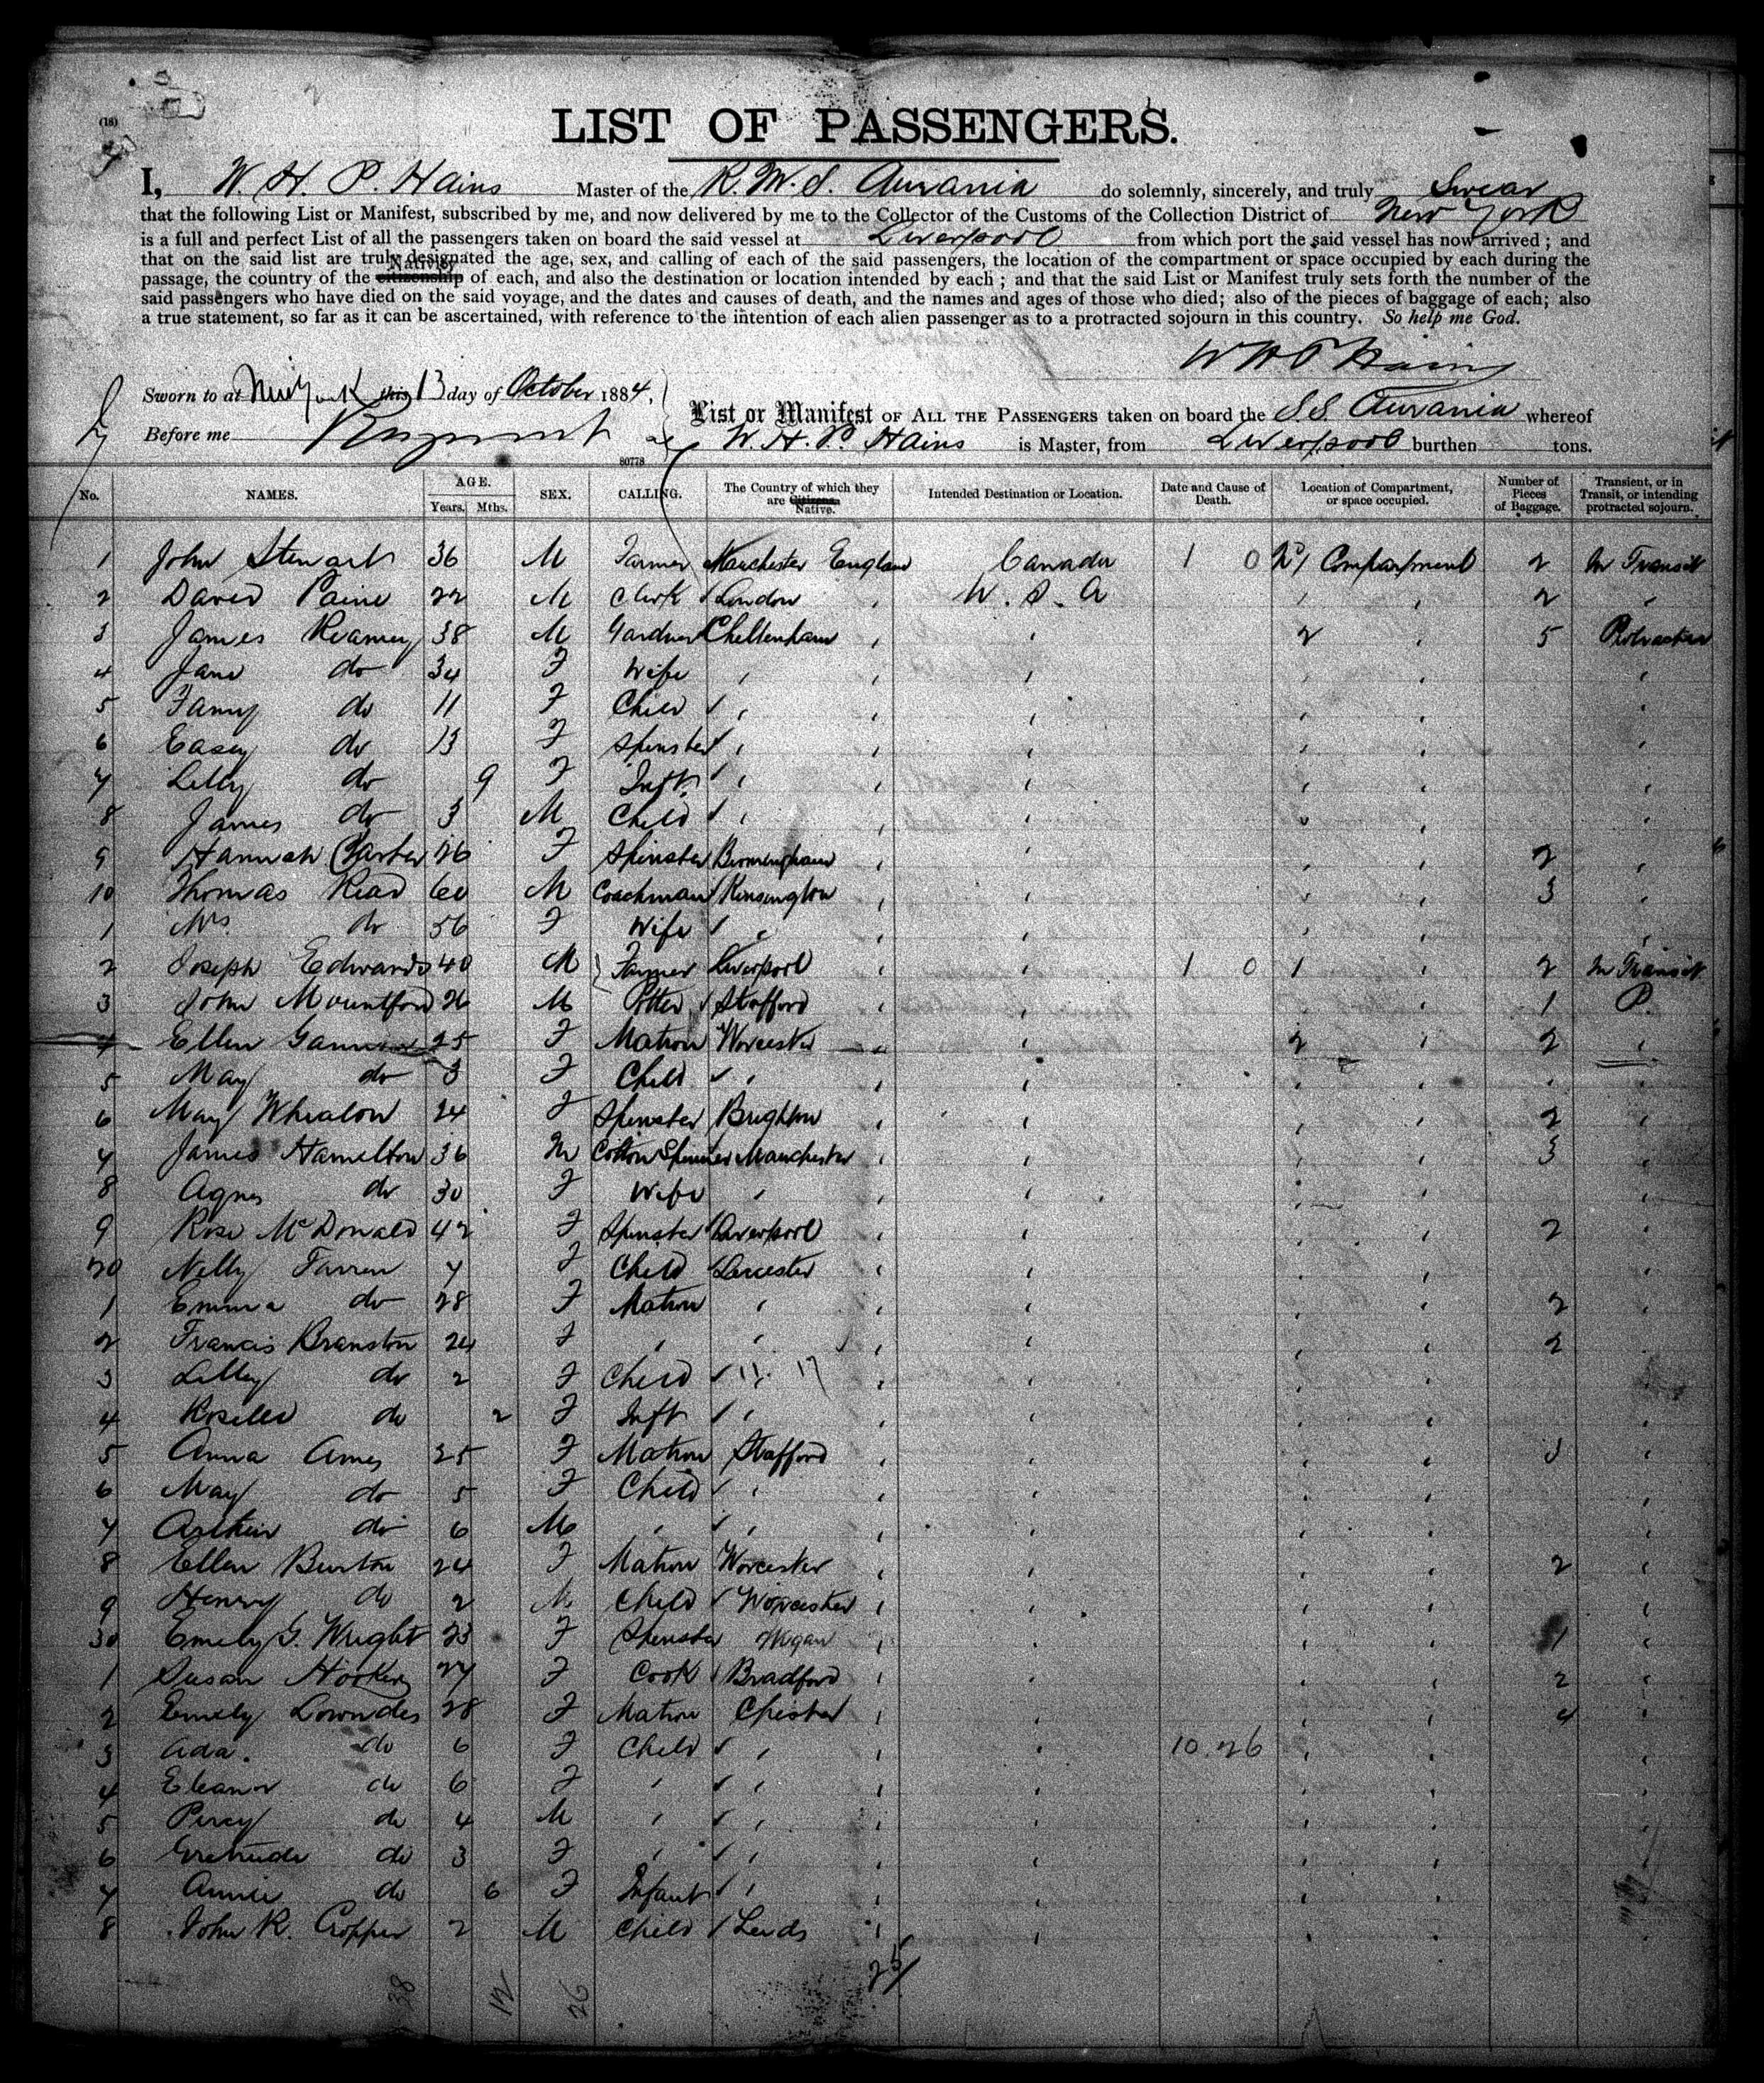 (18)
LIST OF PASSENGERS.
I, W. H. P. Hains Master of the R.M.S. Aurania do solemnly, sincerely, and truly Swear
that the following List or Manifest, subscribed by me, and now delivered by me to the Collector of the Customs of the Collection District of New York
is a full and perfect List of all the passengers taken on board the said vessel at Liverpool from which port the said vessel has now arrived ; and
that on the said list are truly designated the age, sex, and calling of each of the said passengers, the location of the compartment or space occupied by each during the
passage, the country of the citizenship of each, and also the destination or location intended by each ; and that the said List or Manifest truly sets forth the number of the
said passengers who have died on the said voyage, and the dates and causes of death, and the names and ages of those who died; also of the pieces of baggage of each; also
a true statement, so far as it can be ascertained, with reference to the intention of each alien passenger as to a protracted sojourn in this country. So help me God.
W H P Hains
Sworn to at New York this 13 day of October 1884,
List or Manifest OF ALL THE PASSENGERS taken on board the S.S. Aurania whereof
Before me
W. H. P. Hains is Master, from Liverpool burthen tons.
80778
No. NAMES. AGE. Years. Mths. SEX. CALLING. The Country of which they are Citizens. Native. Intended Destination or Location. Date and Cause of Death. Location of Compartment, or space occupied. Number of Pieces of Baggage. Transient, or in Transit, or intending protracted sojourn.
1 John Stewart 36 M Farmer Manchester England Canada 1 0 Compartment 2 In Transit
2 David Paine 22 M Clerk London " U.S.A " " 2 "
3 James 38 M Gardner Cheltenham " " 2 " 5 Protracted
4 Jane do 34 F Wife " " " " " "
5 Fanny do 11 F Child " " " " " "
6 Easey do 13 F Spinster " " " " " "
7 Lilly do 9 F Inft. " " " " " "
8 James do 3 M Child " " " " " "
9 Hannah 26 F Spinster Birmingham " " " " 2 "
10 Thomas Read 60 M Coachman Kensington " " " " 3 "
1 Mrs. do 56 F Wife " " " " " "
2 Joseph Edwards 40 M Farmer Liverpool " " 1 0 1 " 2 In Transit
3 John Mountford 26 M Potter Stafford " " " " 1 P.
4 Ellen 25 F Matron Worcester " " 2 " 2 "
5 May do 3 F Child " " " " " "
6 May Whealon 24 F Spinster Brighton " " " " 2 "
7 James Hamelton 36 M Cotton Spinner Manchester " " " " 3 "
8 Agnes do 30 F Wife " " " " " "
9 Rose McDonald 42 F Spinster Liverpool " " " " 2 "
20 Nelly Farren 7 F Child Leicester " " " " "
1 Emma do 28 F Matron " " " " " 2 "
2 Francis Branston 24 F " " " " " " 2 "
3 Lilly do 2 F Child " " " " " "
4 do 2 F Inft " " " " " "
5 Anna Ames 25 F Matron Stafford " " " " 3 "
6 May do 5 F Child " " " " " "
7 Arthur do 6 M " " " " " " "
8 Ellen Burton 24 F Matron Worcester " " " " 2 "
9 Henry do 2 M Child Worcester " " " " "
30 Emely G. Wright 23 F Spinster Wigan " " " " 1 "
1 Susan Hooker 27 F Cook Bradford " " " " 2 "
2 Emely Lowndes 28 F Matron Chester " " " " 4 "
3 Ada. do 6 F Child " " " 10.26 " " "
4 Eleanor do 6 F " " " " " " "
5 Percy do 4 M " " " " " " "
6 Gertrude do 3 F " " " " " " "
7 Annie do 6 F Infant " " " " " "
8 John R. Cropper 2 M Child Leeds " " " " "
38 12 26